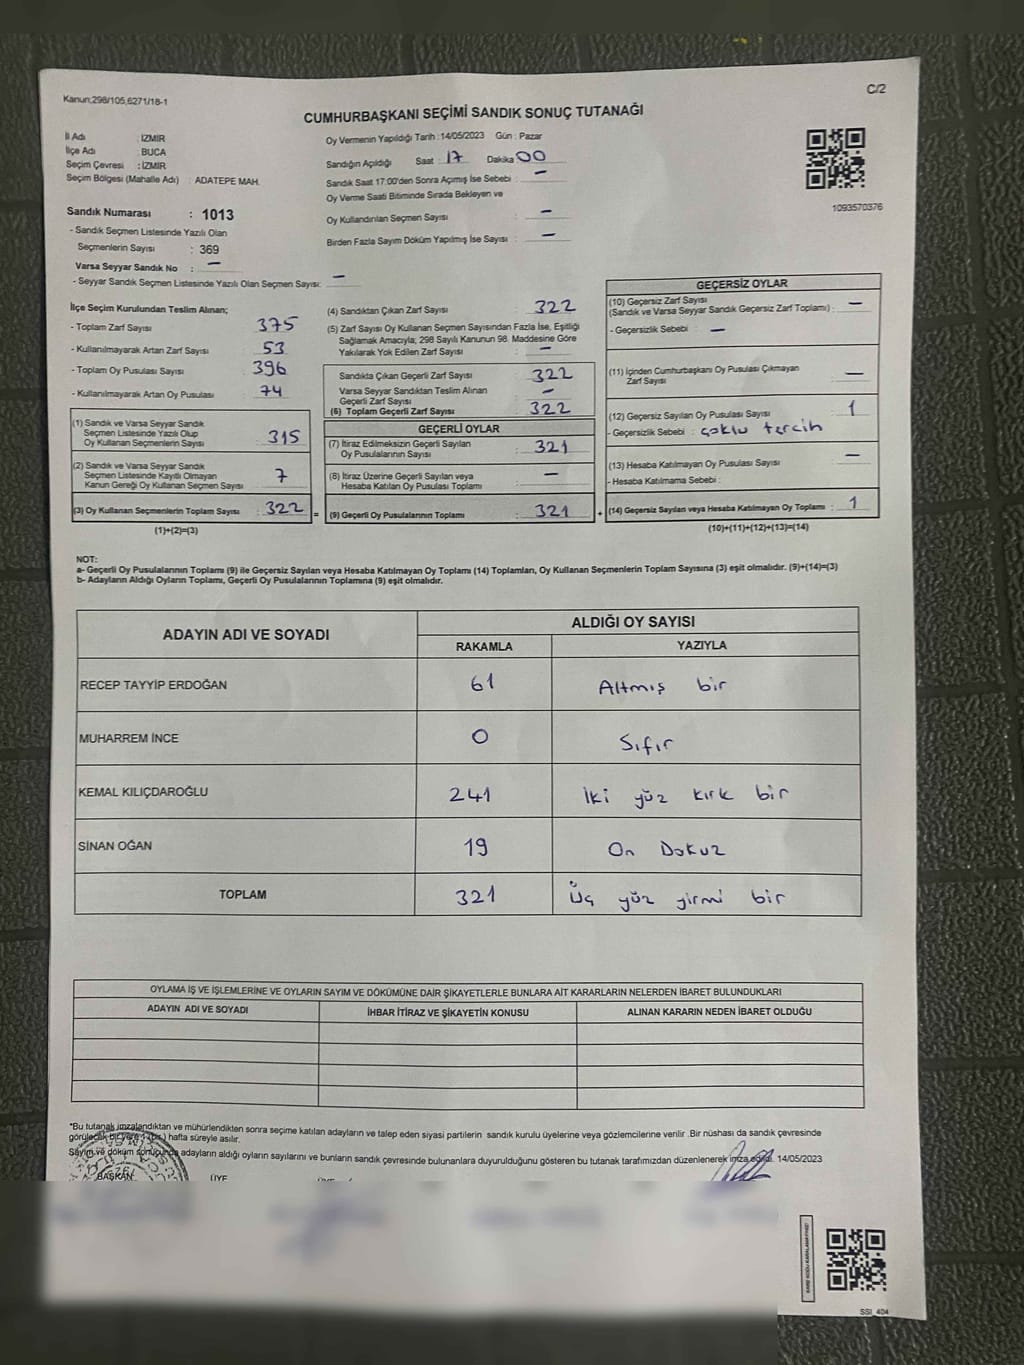 Kanun;298/105,6271/18-1
C/2
CUMHURBAŞKANI SEÇİMİ SANDIK SONUÇ TUTANAĞI
İl Adı : İZMİR
İlçe Adı : BUCA
Seçim Çevresi : İZMİR
Seçim Bölgesi (Mahalle Adı) : ADATEPE MAH.
Oy Vermenin Yapıldığı Tarih : 14/05/2023 Gün : Pazar
Sandığın Açıldığı Saat : 17 Dakika 00
Sandık Saat 17:00'den Sonra Açımış İse Sebebi : –
Oy Verme Saati Bitiminde Sırada Bekleyen ve
Oy Kullandırılan Seçmen Sayısı : –
Birden Fazla Sayım Döküm Yapılmış İse Sayısı : –
1093570376
Sandık Numarası : 1013
- Sandık Seçmen Listesinde Yazılı Olan
Seçmenlerin Sayısı : 369
Varsa Seyyar Sandık No : –
- Seyyar Sandık Seçmen Listesinde Yazılı Olan Seçmen Sayısı: –
İlçe Seçim Kurulundan Teslim Alınan;
- Toplam Zarf Sayısı 375
- Kullanılmayarak Artan Zarf Sayısı 53
- Toplam Oy Pusulası Sayısı 396
- Kullanılmayarak Artan Oy Pusulası 74
(1) Sandık ve Varsa Seyyar Sandık
Seçmen Listesinde Yazılı Olup
Oy Kullanan Seçmenlerin Sayısı : 315
(2) Sandık ve Varsa Seyyar Sandık
Seçmen Listesinde Kayıtlı Olmayan
Kanun Gereği Oy Kullanan Seçmen Sayısı 7
(3) Oy Kullanan Seçmenlerin Toplam Sayısı : 322 =
(1)+(2)=(3)
(4) Sandıktan Çıkan Zarf Sayısı : 322
(5) Zarf Sayısı Oy Kullanan Seçmen Sayısından Fazla İse, Eşitliği
Sağlamak Amacıyla; 298 Sayılı Kanunun 98. Maddesine Göre
Yakılarak Yok Edilen Zarf Sayısı : –
Sandıkta Çıkan Geçerli Zarf Sayısı : 322
Varsa Seyyar Sandıktan Teslim Alınan
Geçerli Zarf Sayısı : –
(6) Toplam Geçerli Zarf Sayısı : 322
GEÇERLİ OYLAR
(7) İtiraz Edilmeksizin Geçerli Sayılan
Oy Pusulalarının Sayısı : 321
(8) İtiraz Üzerine Geçerli Sayılan veya
Hesaba Katılan Oy Pusulası Toplamı : –
(9) Geçerli Oy Pusulalarının Toplamı : 321 +
GEÇERSİZ OYLAR
(10) Geçersiz Zarf Sayısı
(Sandık ve Varsa Seyyar Sandık Geçersiz Zarf Toplamı) : –
- Geçersizlik Sebebi : –
(11) İçinden Cumhurbaşkanı Oy Pusulası Çıkmayan
Zarf Sayısı : –
(12) Geçersiz Sayılan Oy Pusulası Sayısı : 1
- Geçersizlik Sebebi : çoklu tercih
(13) Hesaba Katılmayan Oy Pusulası Sayısı : –
- Hesaba Katılmama Sebebi :
(14) Geçersiz Sayılan veya Hesaba Katılmayan Oy Toplamı : 1
(10)+(11)+(12)+(13)=(14)
NOT:
a- Geçerli Oy Pusulalarının Toplamı (9) ile Geçersiz Sayılan veya Hesaba Katılmayan Oy Toplamı (14) Toplamları, Oy Kullanan Seçmenlerin Toplam Sayısına (3) eşit olmalıdır. (9)+(14)=(3)
b- Adayların Aldığı Oyların Toplamı, Geçerli Oy Pusulalarının Toplamına (9) eşit olmalıdır.
ADAYIN ADI VE SOYADI ALDIĞI OY SAYISI
RAKAMLA YAZIYLA
RECEP TAYYİP ERDOĞAN 61 Altmış bir
MUHARREM İNCE 0 Sıfır
KEMAL KILIÇDAROĞLU 241 İki yüz kırk bir
SİNAN OĞAN 19 On Dokuz
TOPLAM 321 Üç yüz yirmi bir
OYLAMA İŞ VE İŞLEMLERİNE VE OYLARIN SAYIM VE DÖKÜMÜNE DAİR ŞİKAYETLERLE BUNLARA AİT KARARLARIN NELERDEN İBARET BULUNDUKLARI
ADAYIN ADI VE SOYADI İHBAR İTİRAZ VE ŞİKAYETİN KONUSU ALINAN KARARIN NEDEN İBARET OLDUĞU
*Bu tutanak imzalandıktan ve mühürlendikten sonra seçime katılan adayların ve talep eden siyasi partilerin sandık kurulu üyelerine veya gözlemcilerine verilir .Bir nüshası da sandık çevresinde
görülecek bir yere 1 (bir) hafta süreyle asılır.
Sayım ve döküm sonucunda adayların aldığı oyların sayılarını ve bunların sandık çevresinde bulunanlara duyurulduğunu gösteren bu tutanak tarafımızdan düzenlenerek imza edildi. 14/05/2023
BAŞKAN ÜYE
SSI_404